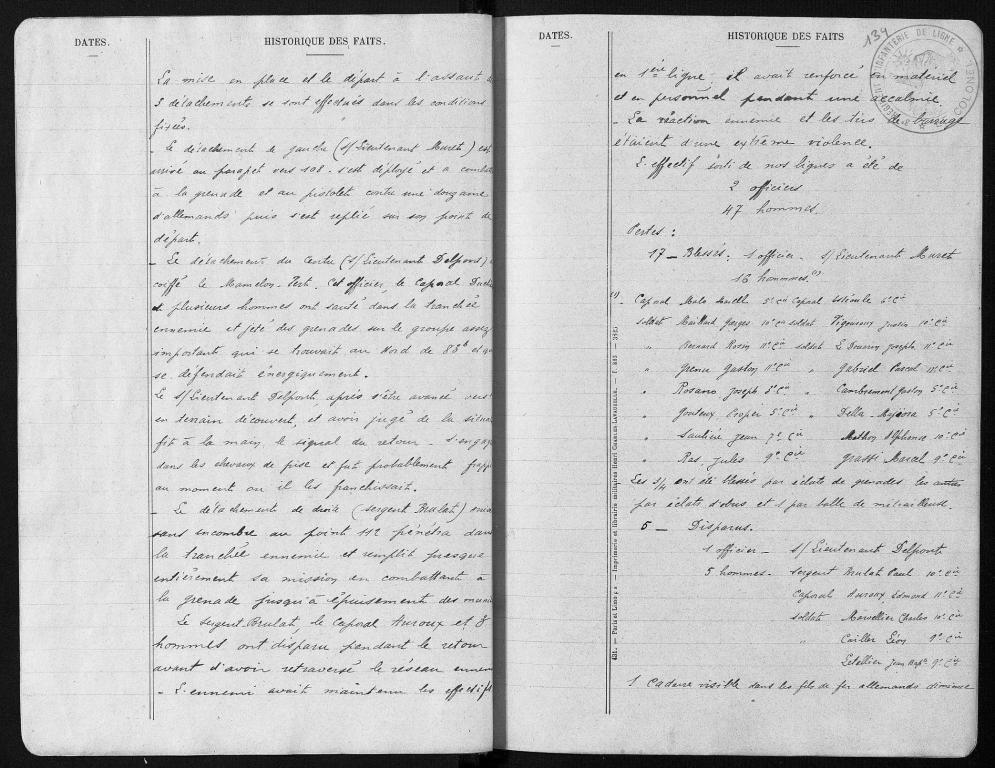 DATES.
HISTORIQUE DES FAITS.
La mise en place et le départ à l'assaut
3 détachements se sont effectués dans les conditions
fixées.
- Le détachement de gauche (s/Lieutenant Muret) est
arrivé au parapet vers 108. s'est déployé et a combattu
à la grenade et au pistolet contre une douzaine
d'allemands puis s'est replié sur son point de
départ.
- Le détachement du Centre (s/Lieutenant Delponte)
coiffé le Mamelon-Vert. Cet officier, le Caporal
et plusieurs hommes ont sauté dans la tranchée
ennemie et jeté des grenades sur le groupe assez
important qui se trouvait au Nord de 88b et qui
se défendait énergiquement.
Le s/Lieutenant Delponte, après s'être avancé vers
en terrain découvert, et avoir jugé de la situa
fit à la main, le signal du retour - s'engag
dans les chevaux de frise et fut probablement frapp
au moment ou il les franchissait.
- Le détachement de droite (sergent Brulat)
sans encombre au point 112 pénétra dans
la tranchée ennemie et remplit presque
entièrement sa mission en combattant à
la grenade jusqu'à épuisement des muni
Le Sergent Brulat, le Caporal Auroux et 8
hommes ont disparu pendant le retour
avant d'avoir retraversé le réseau ennem
- L'ennemi avait maintenu les effectifs
DATES.
HISTORIQUE DES FAITS
134
INFANTERIE DE LIGNE
COLONEL
en 1ère ligne; il avait renforcé en matériel
et en personnel pendant une accalmie.
- La réaction ennemie et les tirs de barrage
étaient d'une extrême violence.
L'effectif sorti de nos lignes a été de
2 officiers
47 hommes.
Pertes :
17 - Blessés: 1 officier - s/Lieutenant Muret
16 hommes (1)
(1) - Caporal Malo 5e Cie Caporal 5e Cie
soldat Maillard Georges 10e Cie soldat Vigouroux Justin 10e Cie
" Bernard 11e Cie soldat Joseph 11e Cie
" Grenu Gaston 11e Cie " Gabriel Pascal 11e Cie
" Rosano Joseph 5e Cie " Gaston 5e Cie
" Prosper 5e Cie " Della-Maggiora 5e Cie
" Jean 7e Cie Mathon Alphonse 10e Cie
" Ras Jules 9e Cie Grassi Marcel 9e Cie
Les 3/4 ont été blessés par éclats de grenades les autres
par éclats d'obus et 1 par balle de mitrailleuse.
6 - Disparus.
1 officier - s/Lieutenant Delponte
5 hommes - sergent Brulat Paul 10e Cie
Caporal Auroux Edmond 11e Cie
soldat Charles 10e Cie
" Cailler Léon 9e Cie
Letellier Jean Bapte 9e Cie
1 Cadavre visible dans les fils de fer allemands
631. - Paris et Limoges. - Imprimerie et librairie militaires Henri CHARLES-LAVAUZELLE.